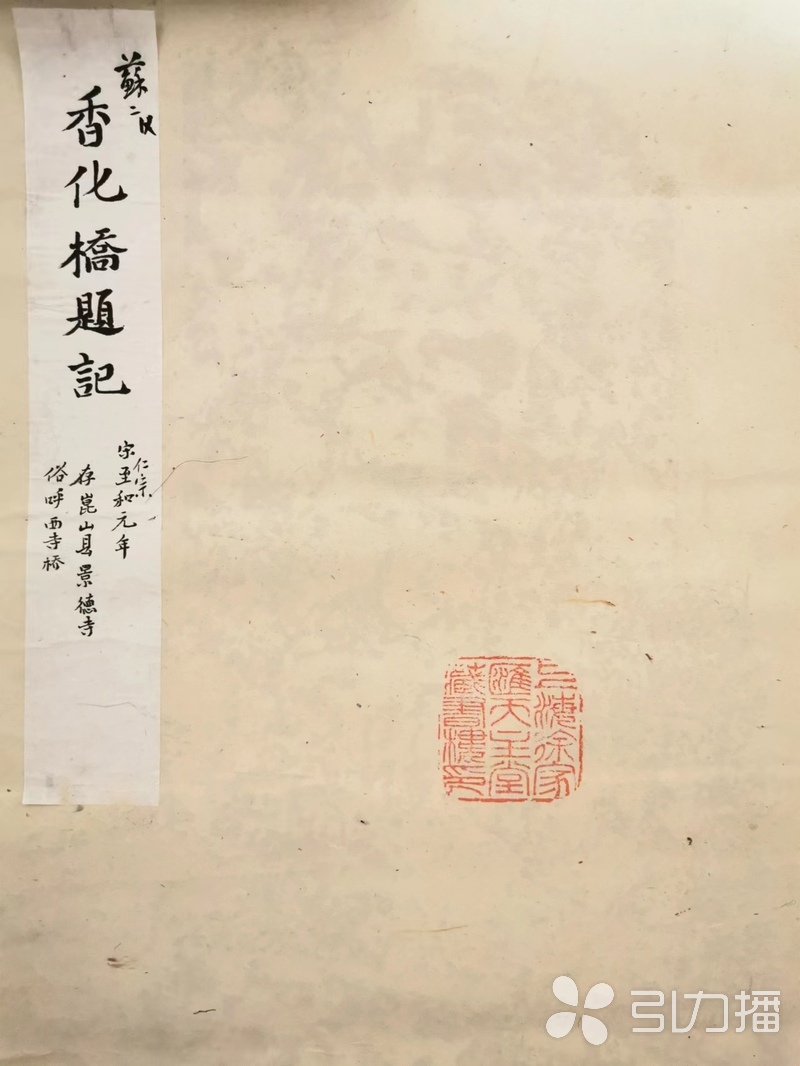 蘇二
香化橋題記
宋仁宗至和元年
存崑山县景德寺
俗呼西寺橋
上海徐家
匯天主堂
藏書樓印
引力播